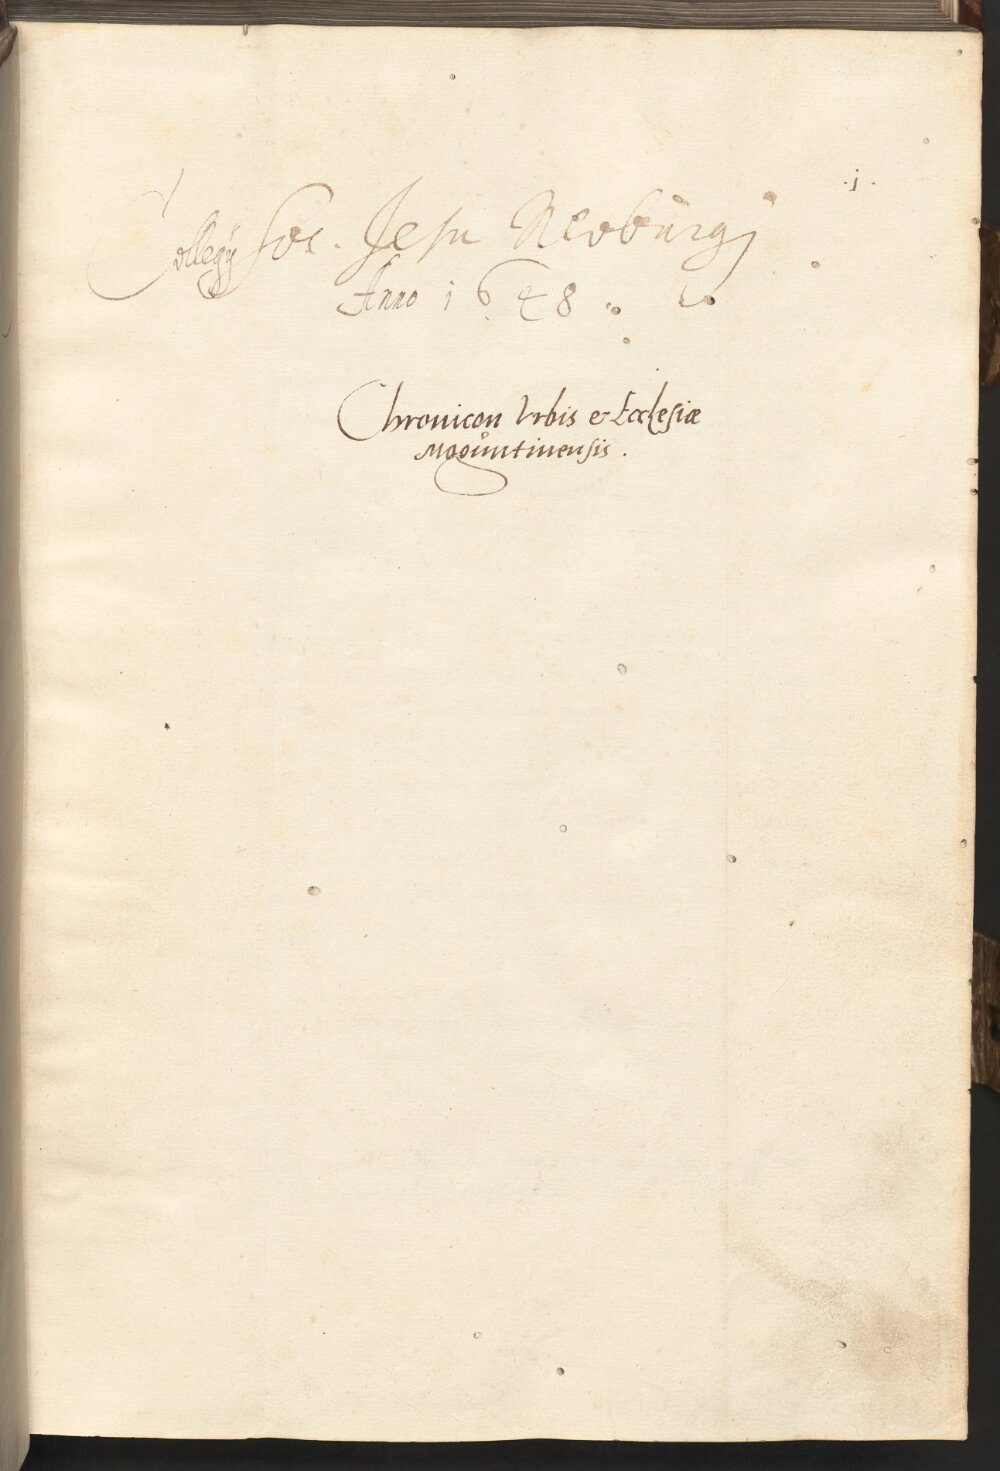 .j.
Collegÿ Soc. Jesu Neoburgi
Anno 1648.
Chronicon Urbis & Ecclesiæ
Moguntinensis.